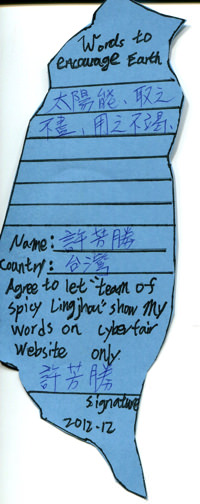 Words to
encourage Earth
太陽能、取之
不盡，用之不竭。
Name: 許芳勝
Country: 台灣
Agree to let "team of
spicy Lingjhou" show My
words on cyberfair
website only.
許芳勝
signature
2012.12